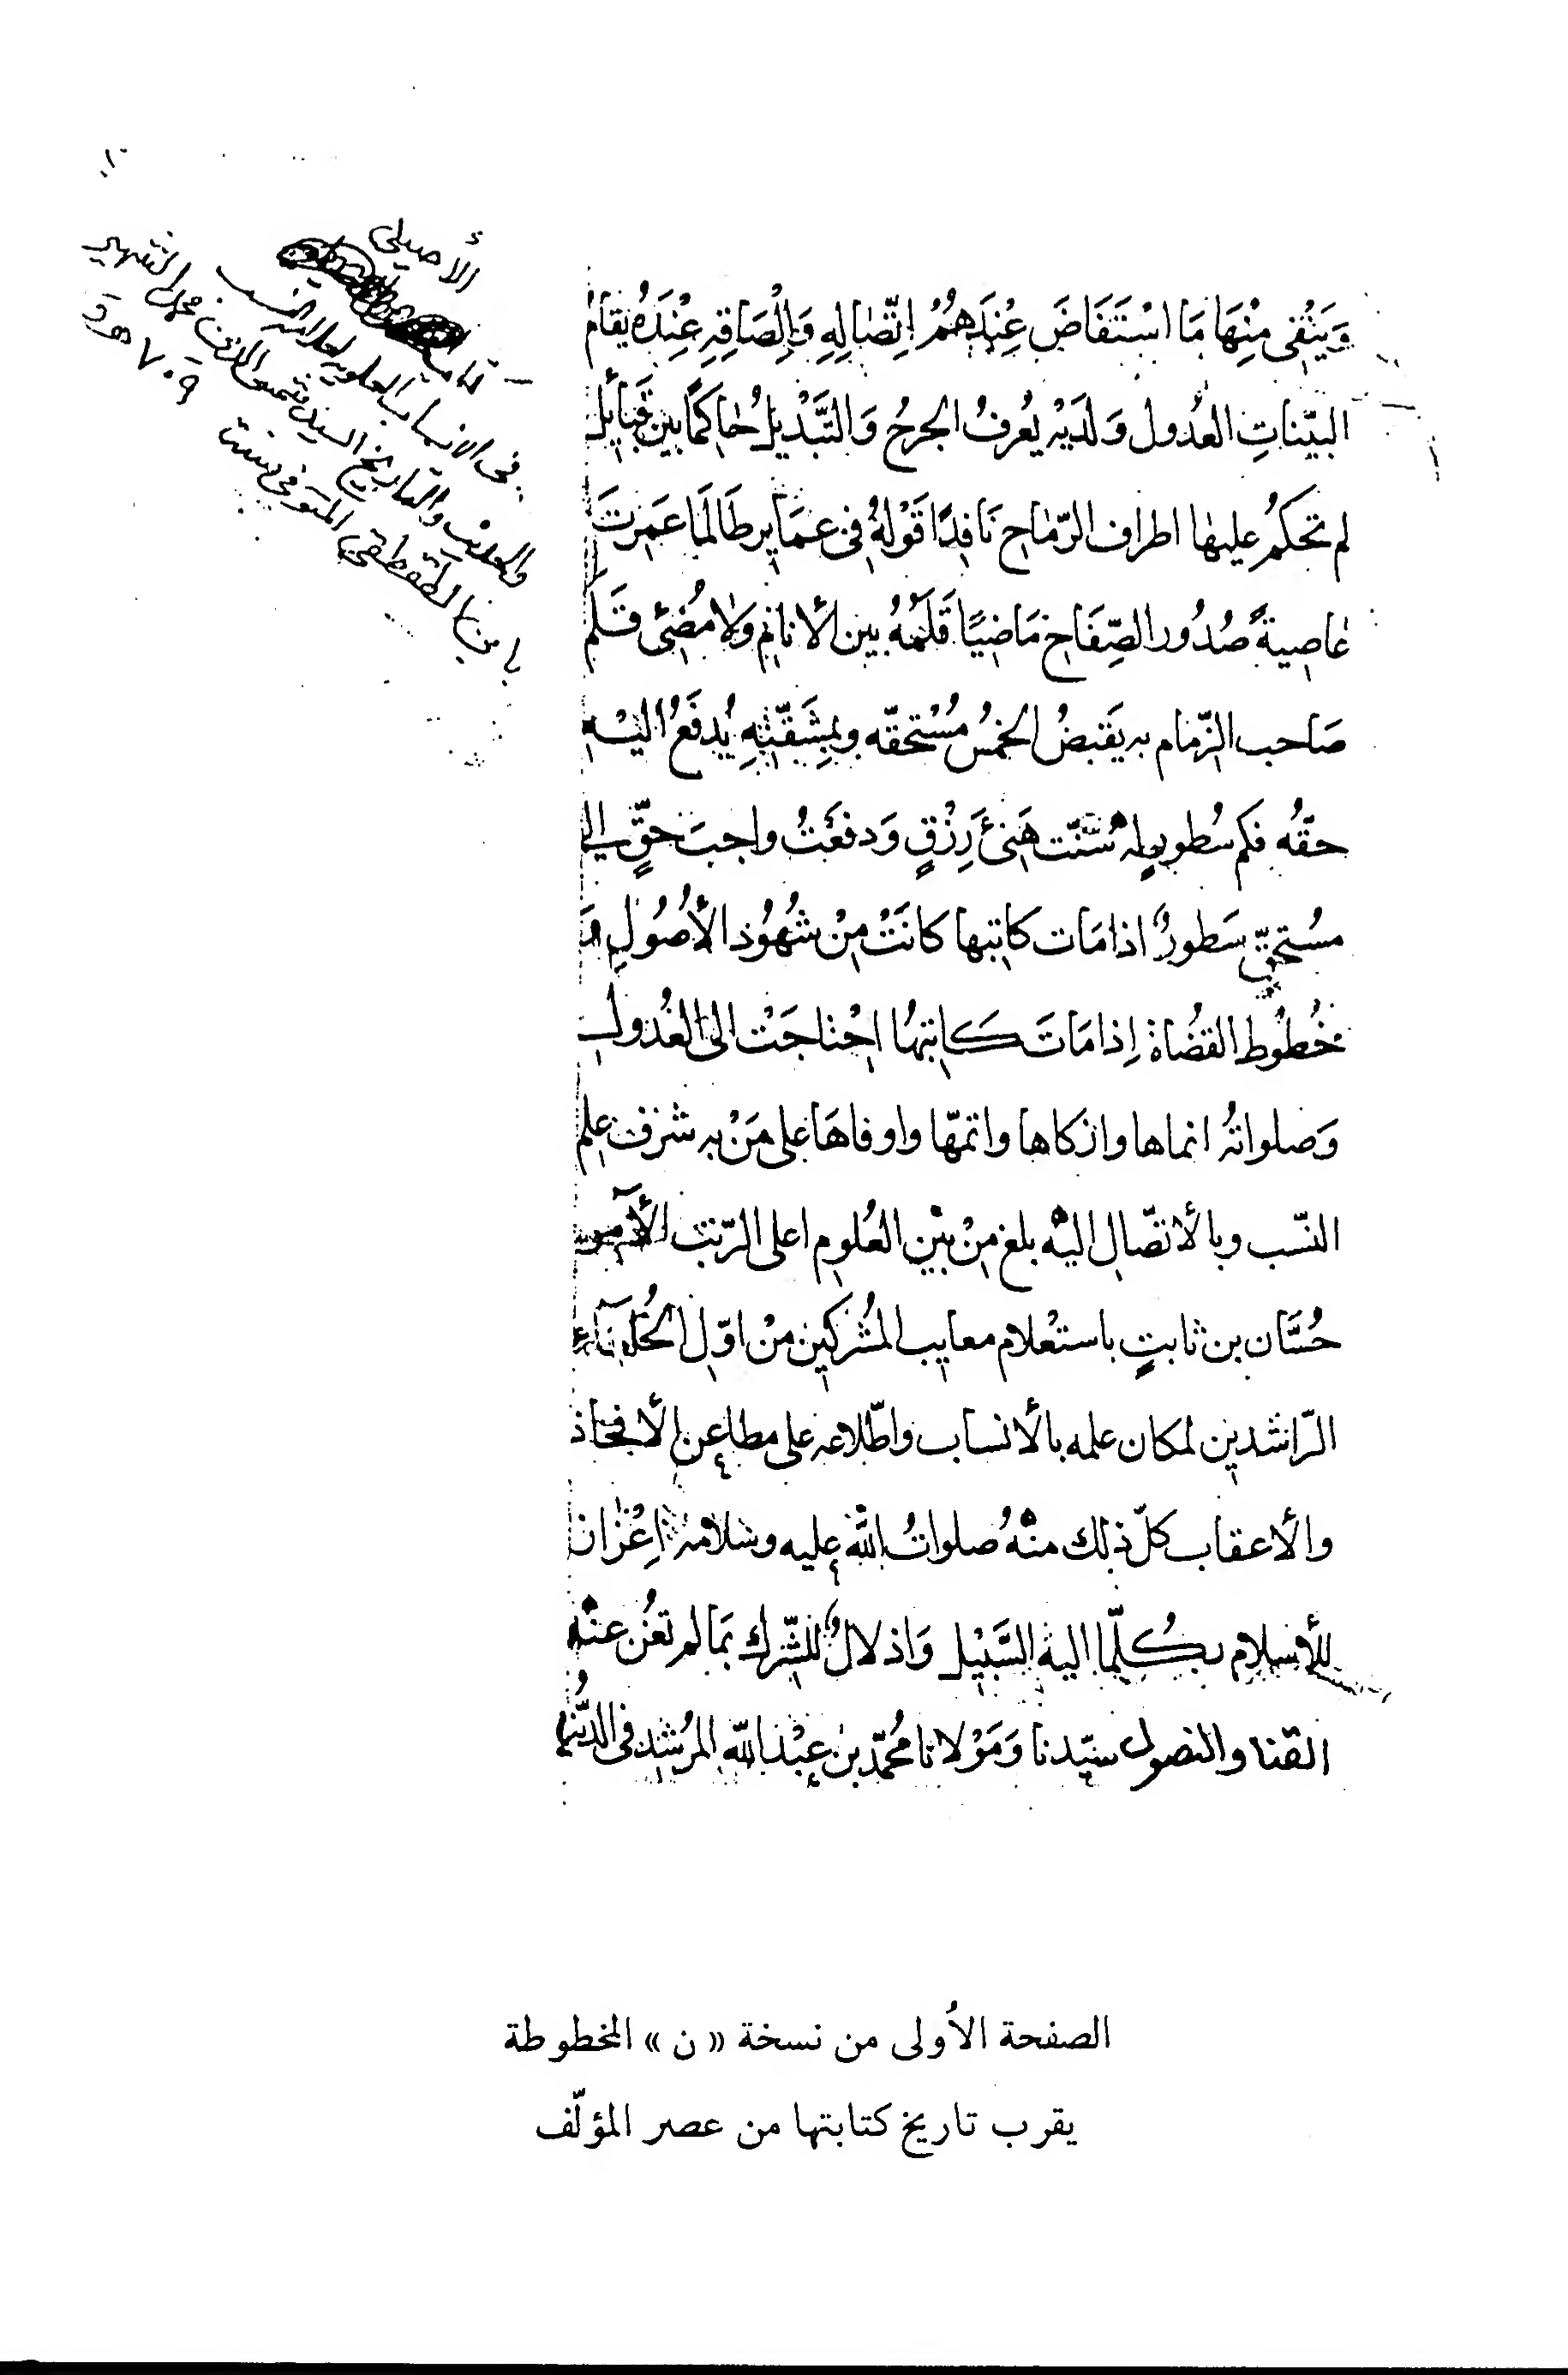 الأصيلي
في الانساب العلوية لعلامة النسب
والحديث والتاريخ السيد شمس الدين محمد الشهير
بابن الطقطقي المتوفى سنة ٧٠٩ هـ ق
وَيَنْفِى مِنْهَا مَا اسْتَفَاضَ عِنْدَهُمُ اتِّصَالِهِ وَالْصَاقِهِ عِنْدَهُ يقام
البيّناتِ العُدول وَلَدَيْهِ يُعرفُ الجرحُ وَالتَّبْدِيلُ حاكمًا بين قبَايل
لم تحكمُ عليها اطراف الرّماح نَافِذًا قَوْلهُ في عمَاير طَالَمَا عَمِرتَ
عاصِيةً صُدُور الصِّفَاح مَاضِيًا قَلَمُهُ بين الأنام ولا مُضِئ قَلَم
صَاحب الزّمام به يَقبضُ الخمسُ مُسْتحقّه وبِمشَقّتِهِ يُدفَعُ اليْه
حقّهُ فكم سُطورٍ له سَنّت هَنئ رَزْقٍ وَدفعَتْ واجبَ حقٍّ الى
مسْتحقّ سَطورٌ اذا مَات كاتبها كانَتْ مِنْ شُهُوْد الأُصُولِ وَ
خُطوُط القضُاة اِذا مَاتَ كاتبهُا احْتاجَتْ الى العُدول
وَصلواتهُ انماها وازكاها واتمّها واوفاها على مَنْ به شرف علم
النسّب وبالأتصّال اليْه بلغ مِنْ بيْن العُلوم اعلى الرّتب الآمر
حُسَّان بن ثابتٍ باستعْلام معايب المُشركين منْ اوّل الخُلفآء
الرّاشدين لمكان علمه بالأنساب واطّلاعه على مطاعن الافخاذ
والأعقاب كلّ ذلك منْهُ صلواتُ اللّه عليه وسلامه اعْزان
للأسلام بكُلّما اليه السَّبيْل وَاذلالٌ للشّرك بمَا لم تغُن عنْه
القنا والنصول سيّدنا وَمَوْلانا محُمّد بن عبْد اللّه المرُشد في الدُّنيا
الصفحة الأولى من نسخة « ن » المخطوطة
يقرب تاريخ كتابتها من عصر المؤلّف